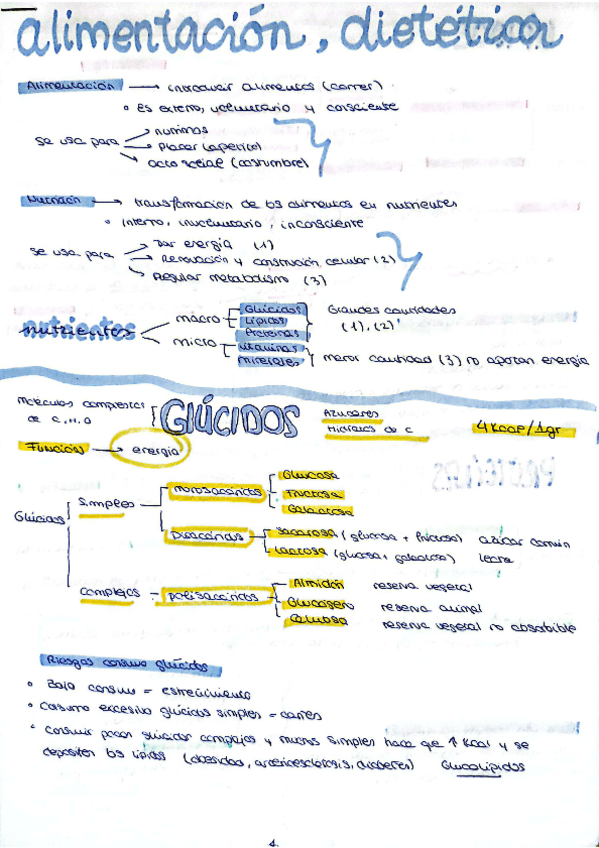 alimentación, dietética
Alimentación → introducir alimentos (comer)
• es externo, voluntario y consciente
se usa para → nutrirnos
→ Placer (apetito)
→ acto social (costumbre)
Nutrición → transformación de los alimentos en nutrientes
• interno, involuntario, inconsciente
se usa para → Dar energía (1)
→ Renovación y construcción celular (2)
→ Regular metabolismo (3)
nutrientes
macro Glúcidos Lípidos Proteínas Grandes cantidades (1), (2)
micro vitaminas minerales menor cantidad (3) no aportan energía
moléculas complejas de C, H, O
GLÚCIDOS
Azúcares
Hidratos de C
4 Kcal/1gr
Función → energía
Glúcidos
Simples
monosacáridos
Glucosa
Fructosa
Galactosa
Disacáridos
Sacarosa (glucosa + fructosa) azúcar común
Lactosa (glucosa + galactosa) leche
Complejos = polisacáridos
Almidón reserva vegetal
Glucógeno reserva animal
Celulosa reserva vegetal no absorbible
Riesgos consumo glúcidos
• Bajo consumo = estreñimiento
• Consumo excesivo glúcidos simples = caries
• Consumir pocos glúcidos complejos y muchos simples hace que ↑ Kcal y se
depositen los lípidos (obesidad, arterioesclerosis, diabetes) Glucolípidos
4